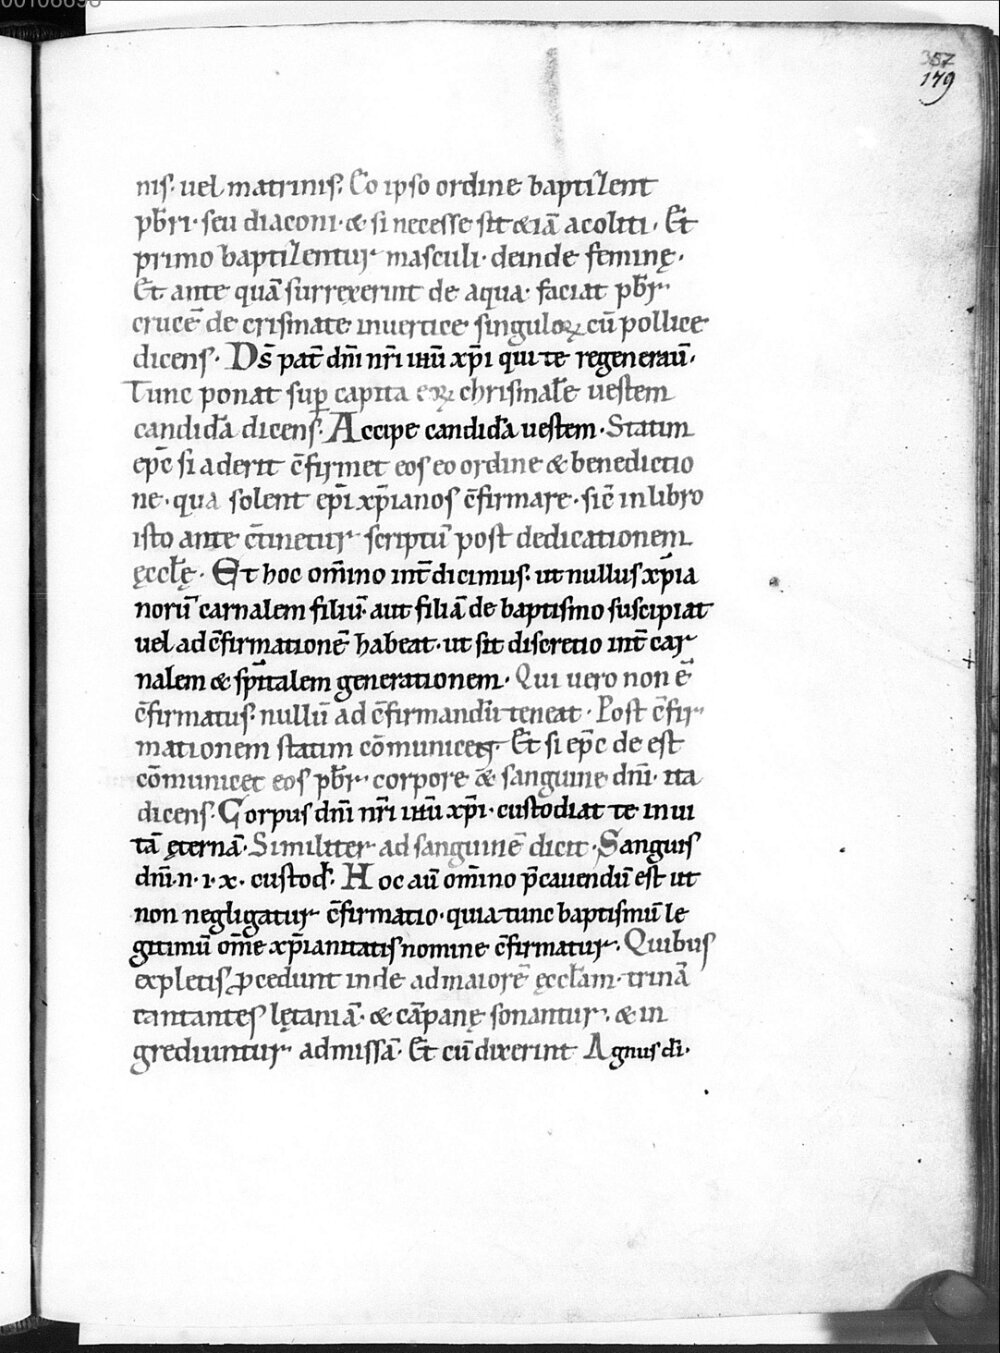 00106698
357
179
nis· uel matrinis; Eo ipso ordine baptizent
pb̄ri· seu diaconi· & si necesse sit &iā acoliti· Et
primo baptizentur masculi· deinde feminę·
Et ante quā surrexerint de aqua· faciat pb̄r
crucē de crismate inuertice singuloꝝ cū pollice
dicens· Ds̄ pat̄ dn̄i nr̄i ihū xp̄i qui te regenerau̅·
Tunc ponat sup̱ capita eoꝝ chrismal̄e uestem
candidā dicens· Accipe candidā uestem· Statim
ep̄c si aderit c̄firmet eos eo ordine & benedictio
ne· qua solent ep̄i xp̄ianos c̄firmare· sic̄ inlibro
isto ante c̄tinetur scriptū post dedicationem
ęccl̄ę· Et hoc om̄ino int̄dicimus· ut nullus xp̄ia
norū carnalem filiū· aut filiā de baptismo suscipiat
uel ad c̄firmationē habeat· ut sit discretio int̄ car
nalem & sp̄italem generationem· Qui uero non ē
c̄firmatus· nullū ad c̄firmandū teneat· Post c̄fir
mationem statim cōmunicet· Et si ep̄c de est
cōmunicet eos pb̄r· corpore & sanguine dn̄i· ita
dicens· Corpus dn̄i nr̄i ihū xp̄i· custodiat te in ui
tā ęternā· Similiter ad sanguinē dicit· Sanguis
dn̄i· n· i· x· custod̄· Hoc au̅ om̄ino p̄cauendū est ut
non negligatur c̄firmatio· quia tunc baptismū le
gitimū om̄e xp̄ianitatis nomine c̄firmatur· Quibus
expletis ꝓcedunt inde admaiorē ęccl̄am· trinā
cantantes lętaniā· & cāpanę sonantur· & in
grediuntur admissā· Et cū dixerint Agnus dī·